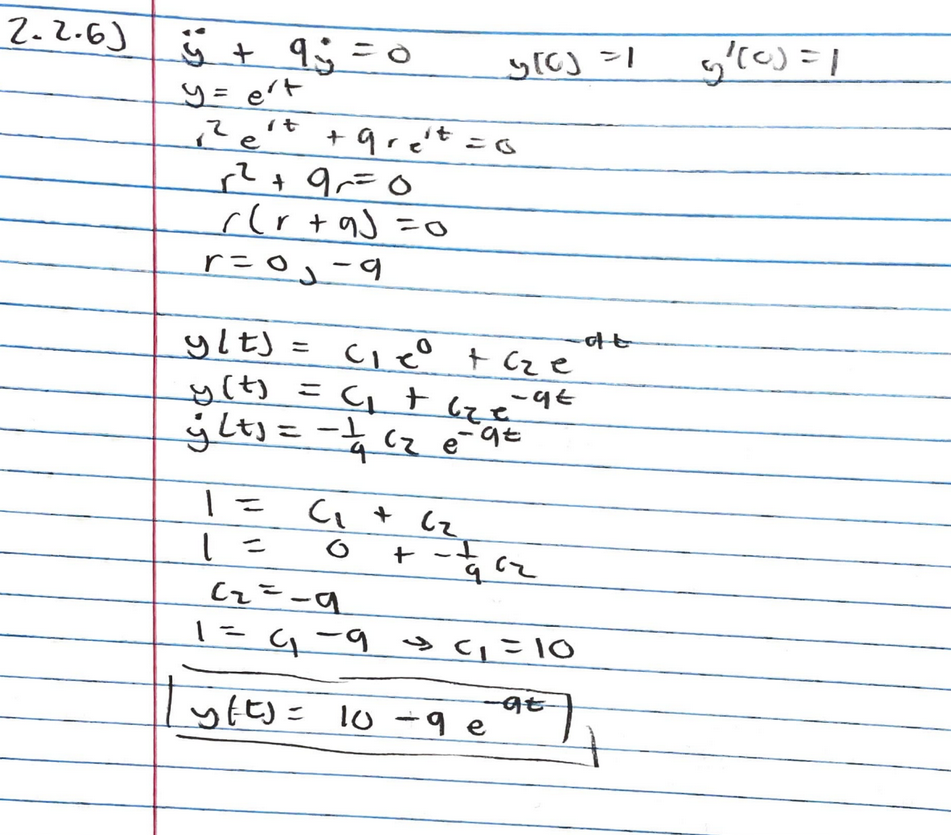 2.2.6) ÿ + 9ẏ = 0 y(0) = 1 y'(0) = 1
y = e^rt
r² e^rt + 9 r e^rt = 0
r² + 9r = 0
r(r + 9) = 0
r = 0, -9
y(t) = c₁ e⁰ + c₂ e^-9t
y(t) = c₁ + c₂ e^-9t
ẏ(t) = -1/9 c₂ e^-9t
1 = c₁ + c₂
1 = 0 + -1/9 c₂
c₂ = -9
1 = c₁ - 9 → c₁ = 10
y(t) = 10 - 9 e^-9t